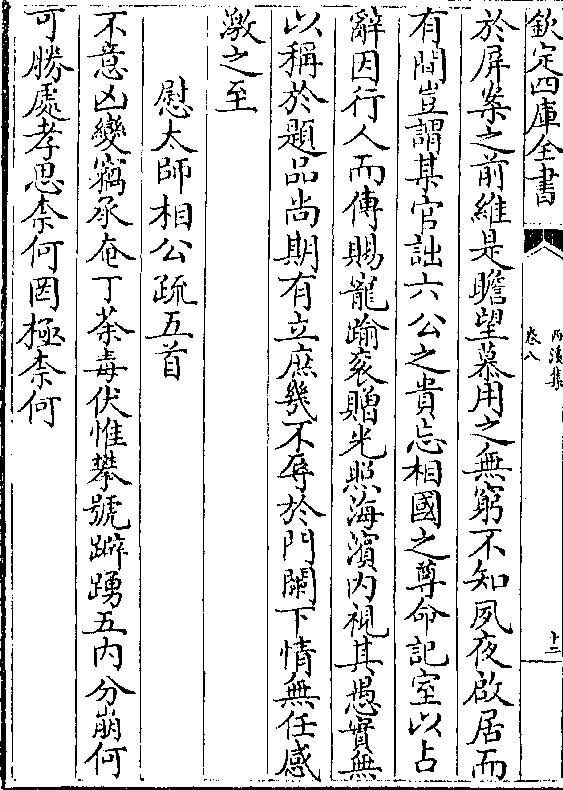 欽定四庫全書
卷八
十二
於屏案之前維是瞻望慕用之無窮不知夙夜啟居而
有間豈謂某官詘六公之貴忘相國之尊命記室以占
辭因行人而傳賜寵踰衮贈光照海濵内視其愚實無
以稱於題品尚期有立庶幾不辱於門闌下情無任感
激之至
慰太師相公疏五首
不意凶變竊承奄丁荼毒伏惟攀號躃踴五内分崩何
可勝處孝思柰何罔極柰何